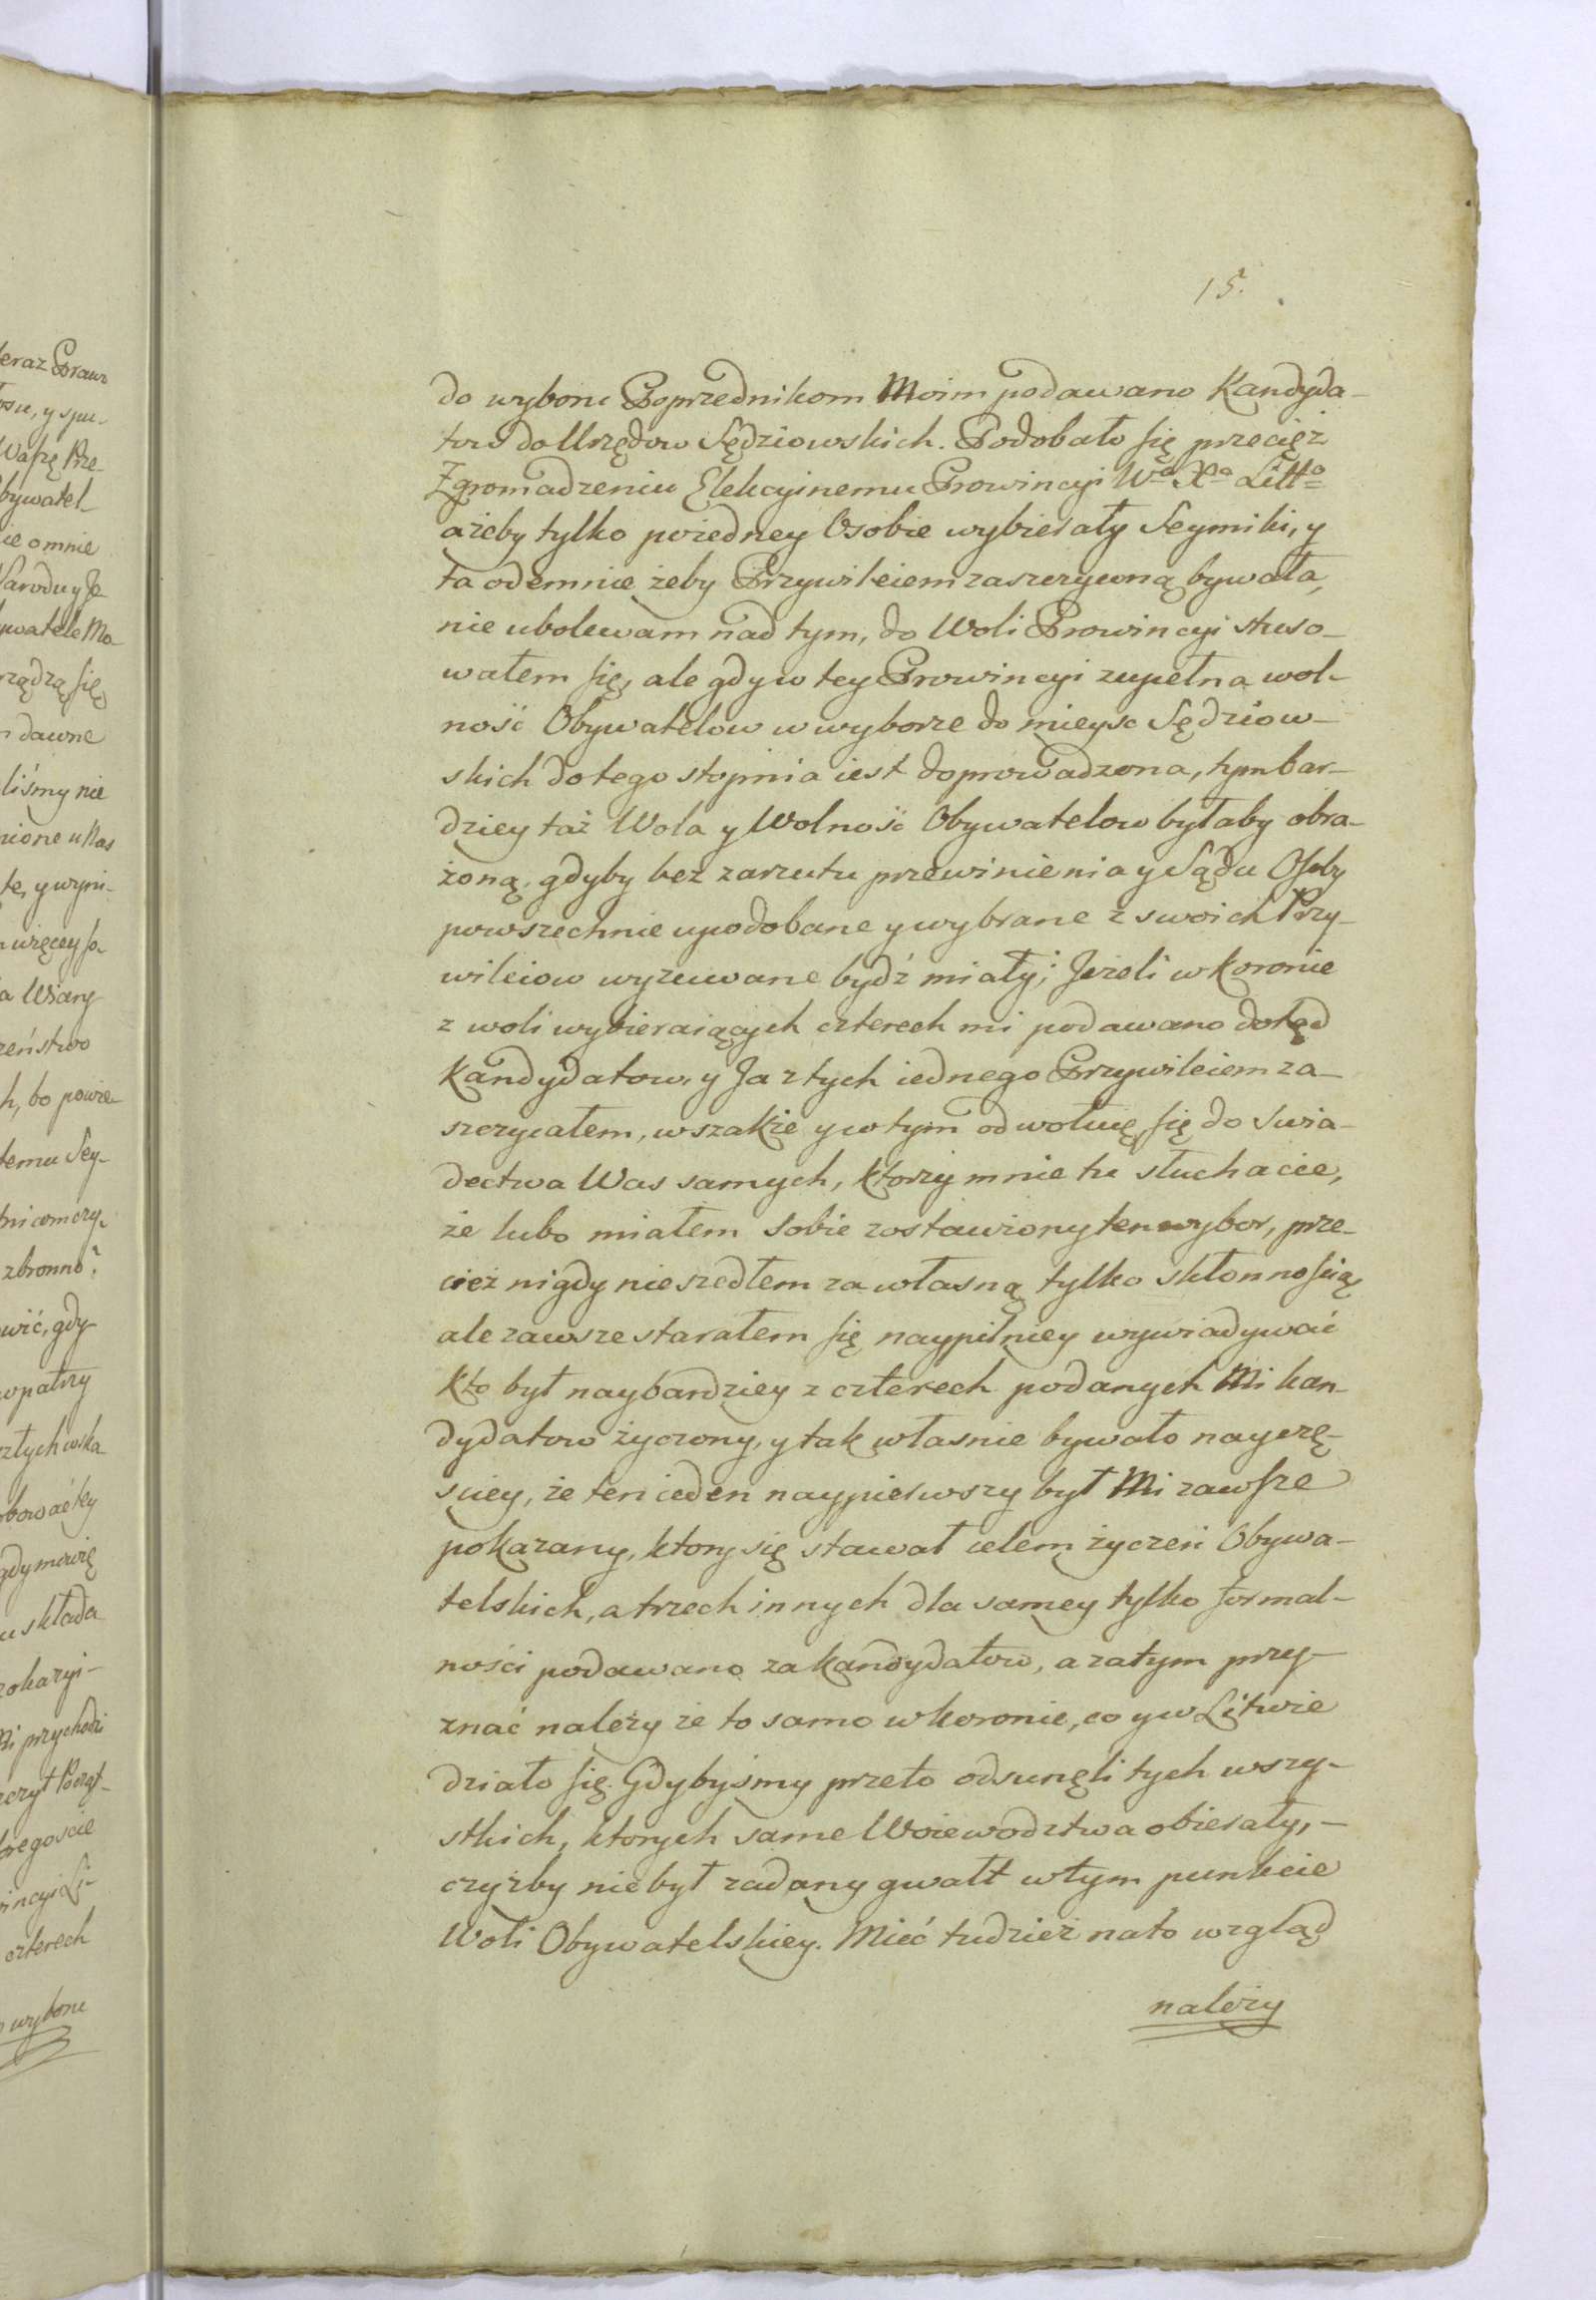 15.
do wyboru Poprzednikom Moim podawano Kandyda-
tow do Urzędow Sędziowskich. Podobało się przecięż
Zgromadzeniu Elekcyinemu Prowincyi Wo Xa Litto
ażeby tylko poiedney Osobie wybierały Seymiki, y
ta odemnie żeby Przywileiem zaszczyconą bywała,
nie ubolewam nad tym, do Woli Prowincyi stoso-
wałem się, ale gdy w tey Prowincyi zupełna wol-
ność Obywatelow w wyborze do mieysc Sędziow-
skich do tego stopnia iest doprowadzona, tym bar-
dziey taż Wola y Wolność Obywatelow byłaby obra-
żoną, gdyby bez zarzutu przewinienia y Sądu Osoby
powszechnie upodobane y wybrane z swoich Przy-
wileiow wyzuwane bydź miały; Jeżeli w koronie
z woli wybieraiących czterech mi podawano dotąd
Kandydatow, y Ja z tych iednego Przywileiem za-
szczycałem, wszakże y w tym odwołuię się do Swia-
dectwa Was samych, ktorzy mnie tu słuchacie,
że lubo miałem sobie zostawiony ten wybor, prze-
cież nigdy nieszedłem za własną tylko skłonnością
ale zawsze starałem się naypilniey wywiadywać
kto był naybardziey z czterech podanych Mi kan-
dydatow życzony, y tak własnie bywało nayczę-
sciey, że ten ieden naypierwszy był Mi zawsze
pokazany, ktory się stawał celem życzeń Obywa-
telskich, a trzech innych dla samey tylko formal-
ności podawano za kandydatow, a zatym przy-
znać należy że to samo w koronie, co y w Litwie
działo się. Gdybyśmy przeto odsunęli tych wszy-
stkich, ktorych same Woiewodztwa obierały,-
czyżby nie był zadany gwałt w tym punkcie
Woli Obywatelskiey. Mieć tudzież na to wzgląd
należy